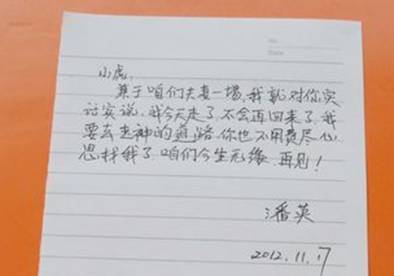 No.
Date
小虎,
基于咱们夫妻一场,我就对你实
话实说,我今天走了,不会再回来了,我
要去走神的道路,你也不用费尽心
思找我了,咱们今生无缘,再见!
潘英
2012.11.17